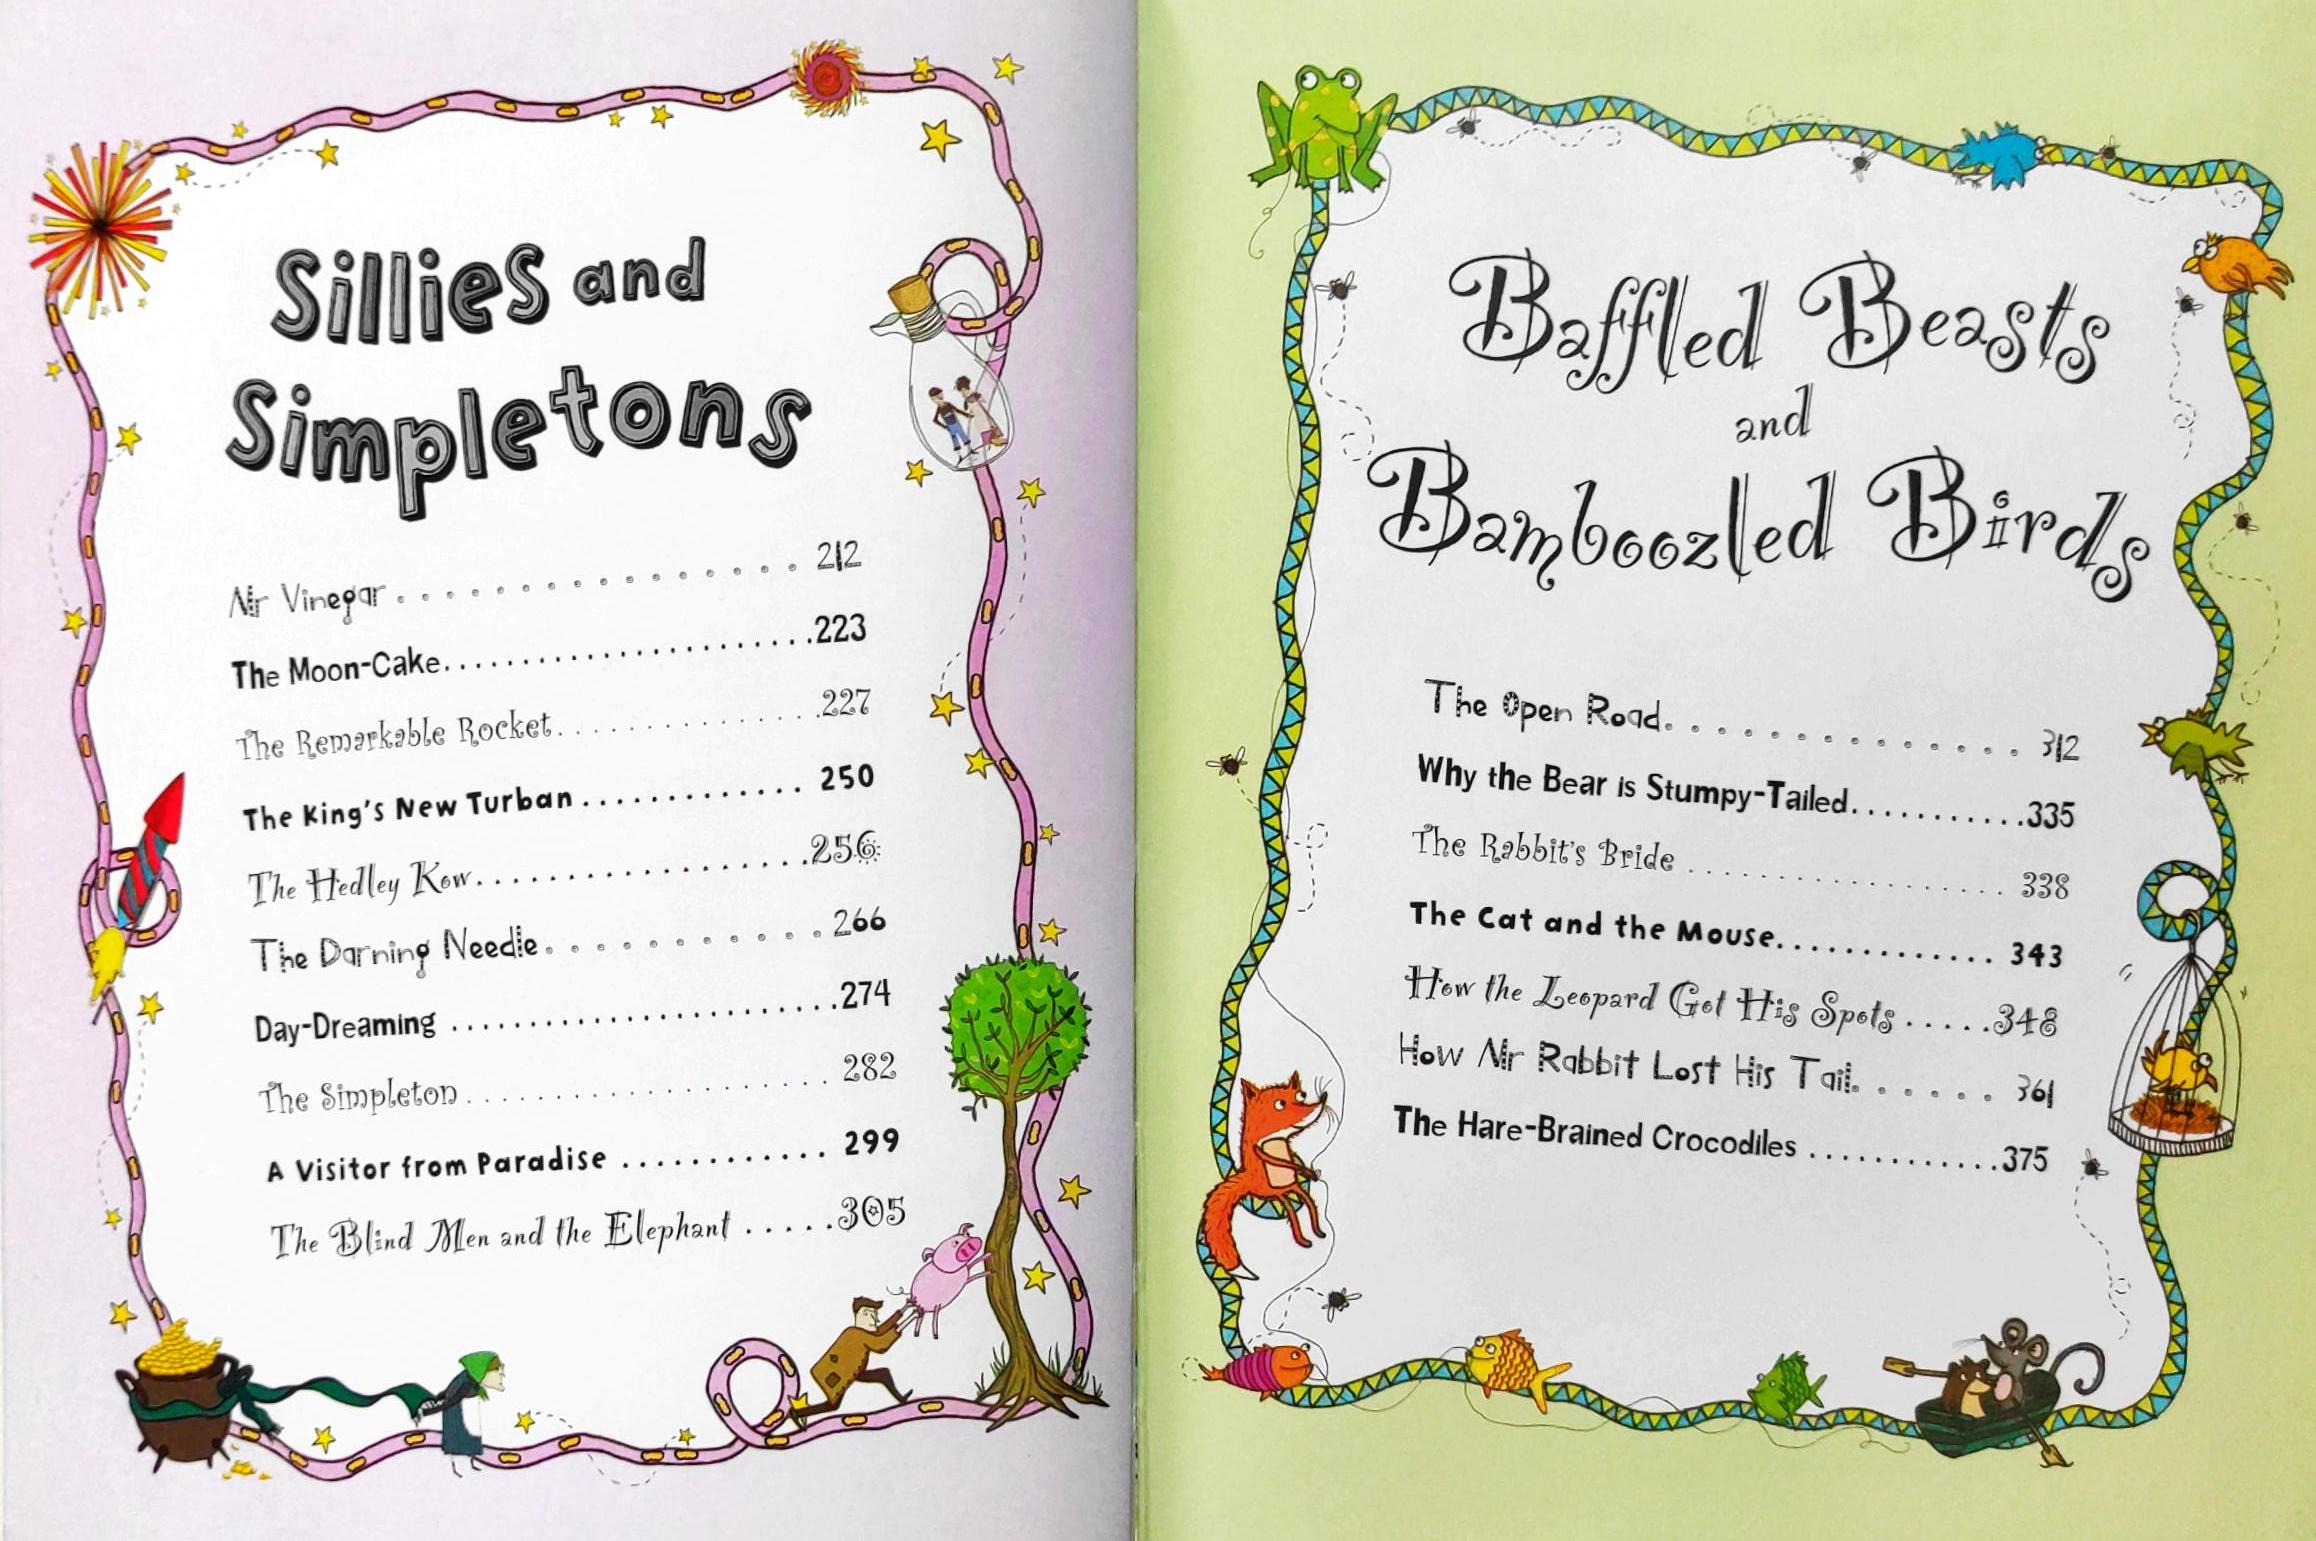 Sillies and
Simpletons
Mr Vinegar . . . . . . . . . . . . . . . . . 212
The Moon-Cake........................223
The Remarkable Rocket...................227
The King's New Turban ............. 250
The Hedley Kow..................256
The Darning Needle. . . . . . . . . . . . 266
Day-Dreaming .........................274
The Simpleton ......................... 282
A Visitor from Paradise ............ 299
The Blind Men and the Elephant .....305
Baffled Beasts
and
Bamboozled Birds
The Open Road. . . . . . . . . . . . . . 312
Why the Bear is Stumpy-Tailed...........335
The Rabbit's Bride ..................... 338
The Cat and the Mouse............ 343
How the Leopard Got His Spots .....348
How Mr Rabbit Lost His Tail. . . . . . 361
The Hare-Brained Crocodiles ............375